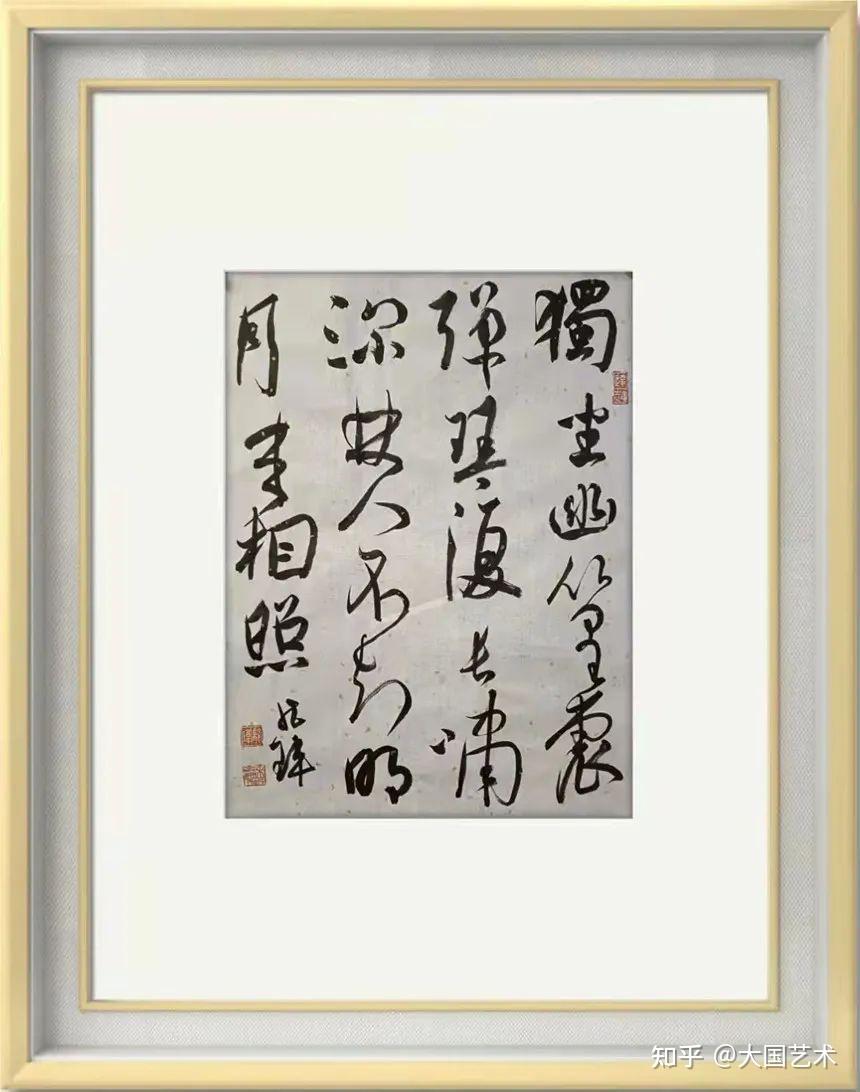 獨坐幽篁裏
彈琴復長嘯
深林人不知明
月来相照
知乎 @大国艺术